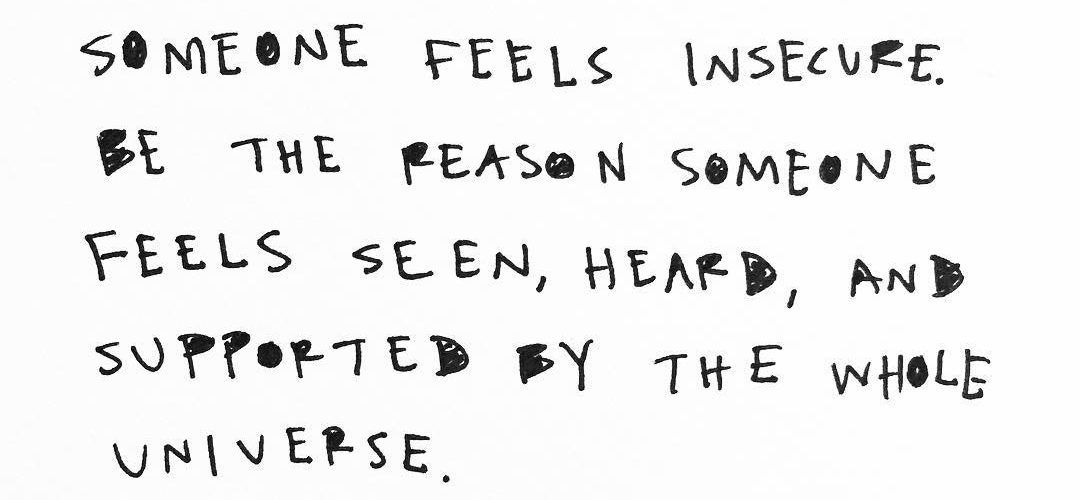 SOMEONE FEELS INSECURE.
BE THE REASON SOMEONE
FEELS SEEN, HEARD, AND
SUPPORTED BY THE WHOLE
UNIVERSE.